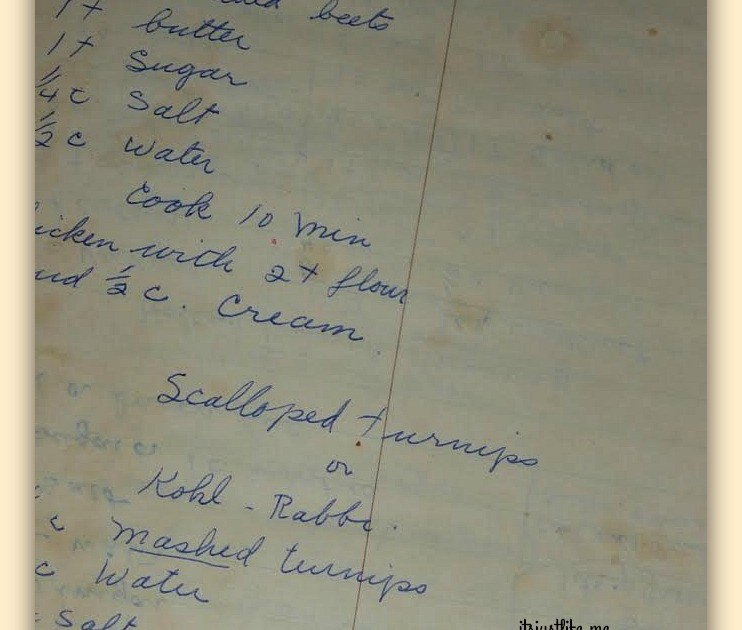 beets
1 t butter
1 t Sugar
1/4 t Salt
1/2 c Water
Cook 10 min
icken with 2 t flour
nd 1/2 c. Cream.
Scalloped turnips
or
Kohl - Rabbi.
c mashed turnips
c Water
Salt
itsjustlife.me